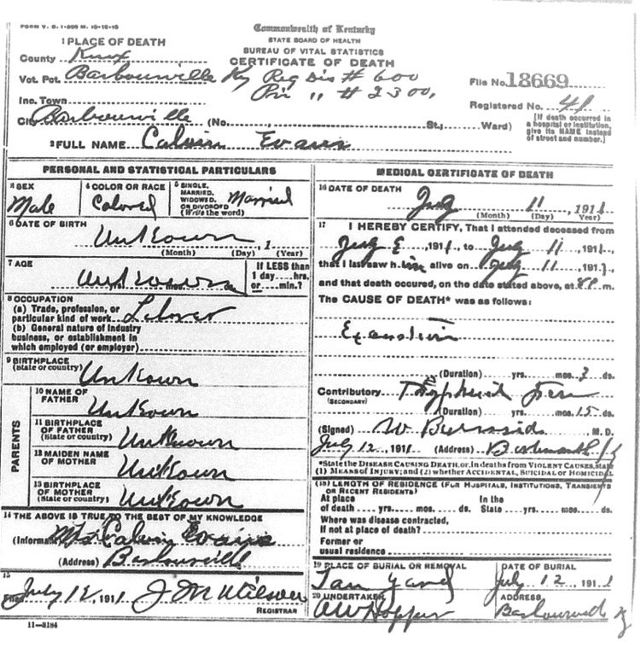 FORM V. S. 1-
Commonwealth of Kentucky
STATE BOARD OF HEALTH
BUREAU OF VITAL STATISTICS
CERTIFICATE OF DEATH
1 PLACE OF DEATH
County Knox
Vot. Pct. Barbourville Ky Reg Dis # 600
Pri " # 2300,
File No. 18669
Inc. Town
Registered No. 41
City Barbourville (No. , St., Ward)
[If death occurred in a hospital or institution, give its NAME instead of street and number.]
2 FULL NAME Calvin Evans
PERSONAL AND STATISTICAL PARTICULARS
3 SEX
Male
4 COLOR OR RACE
Colored
5 SINGLE, MARRIED, WIDOWED, OR DIVORCED (Write the word)
Married
6 DATE OF BIRTH
Unkown , 1
(Month) (Day) (Year)
7 AGE
If LESS than 1 day....hrs. or....min.?
8 OCCUPATION
(a) Trade, profession, or particular kind of work
(b) General nature of industry business, or establishment in which employed (or employer)
9 BIRTHPLACE
(State or country) Unkown
PARENTS
10 NAME OF FATHER Unkown
11 BIRTHPLACE OF FATHER (State or country) Unknown
12 MAIDEN NAME OF MOTHER Unkown
13 BIRTHPLACE OF MOTHER (State or country) Unkown
14 THE ABOVE IS TRUE TO THE BEST OF MY KNOWLEDGE
(Informant) Mrs Calvin Evans
(Address) Barbourville
15
Filed July 12, 1911 J M Wilson
REGISTRAR
11-3184
MEDICAL CERTIFICATE OF DEATH
16 DATE OF DEATH
July 11 , 1911
(Month) (Day) (Year)
17 I HEREBY CERTIFY, That I attended deceased from
1911, to July 11 1911,
that I last saw him alive on July 11, 191
and that death occured, on the date stated above, at m.
The CAUSE OF DEATH* was as follows:
(Duration) yrs. mos. 3 ds.
Contributory Typhoid Fever
(SECONDARY)
(Duration) yrs. mos. 15 ds.
(Signed) W Burnside M. D.
July 12, 1911 (Address)
*State the DISEASE CAUSING DEATH, or, in deaths from VIOLENT CAUSES, state (1) MEANS OF INJURY; and (2) whether ACCIDENTAL, SUICIDAL or HOMICIDAL.
(18) LENGTH OF RESIDENCE (FOR HOSPITALS, INSTITUTIONS, TRANSIENTS OR RECENT RESIDENTS)
At place of death yrs. mos. ds. In the State yrs. mos. ds.
Where was disease contracted, if not at place of death?
Former or usual residence
19 PLACE OF BURIAL OR REMOVAL
Tan Yard
DATE OF BURIAL
July 12, 1911
20 UNDERTAKER
Hopper
ADDRESS